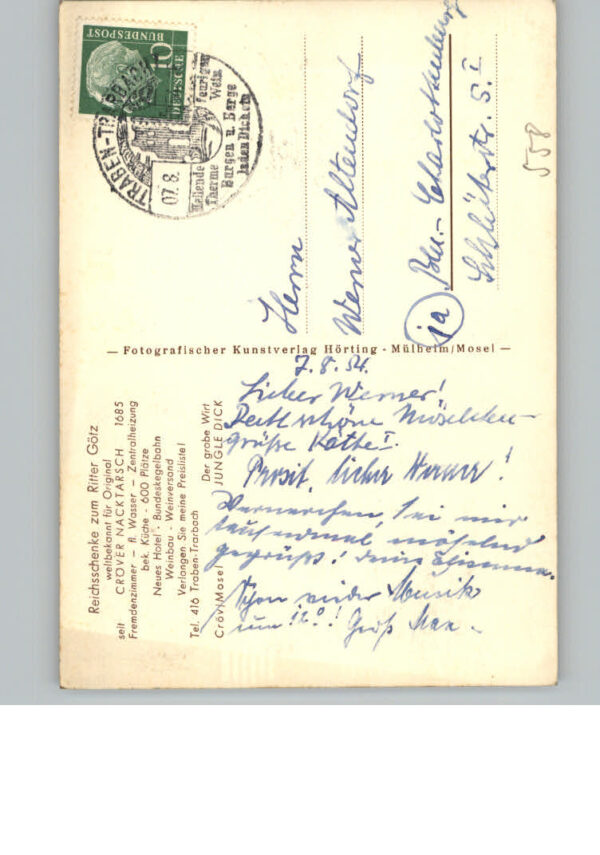 DEUTSCHE
BUNDESPOST
10
TRABEN-TRARBACH
07. 8.
Heilende
Therme
feuriger
Wein
Burgen u. Berge
laden Dich ein
Herrn
Werner Altendorf
(ja) Bln.-Charlottenburg
Schlüterstr. 5. I
558
— Fotografischer Kunstverlag Hörting - Mülheim/Mosel —
Reichsschenke zum Ritter Götz
weltbekannt für Original
seit CRÖVER NACKTARSCH 1685
Fremdenzimmer — fl. Wasser — Zentralheizung
bek. Küche - 600 Plätze
Neues Hotel · Bundeskegelbahn
Weinbau - Weinversand
Verlangen Sie meine Preisliste!
Tel. 416 Traben-Trarbach
Der grobe Wirt
Cröv/Mosel JUNGLE DICK
7.8.54.
Lieber Werner!
Recht schöne Mosel
grüße
Prosit, lieber Werner!
Wernerchen, sei mir
tausendmal möselnd
gegrüßt! dein
Schon wieder Musik
um 12.0! Gruß Max